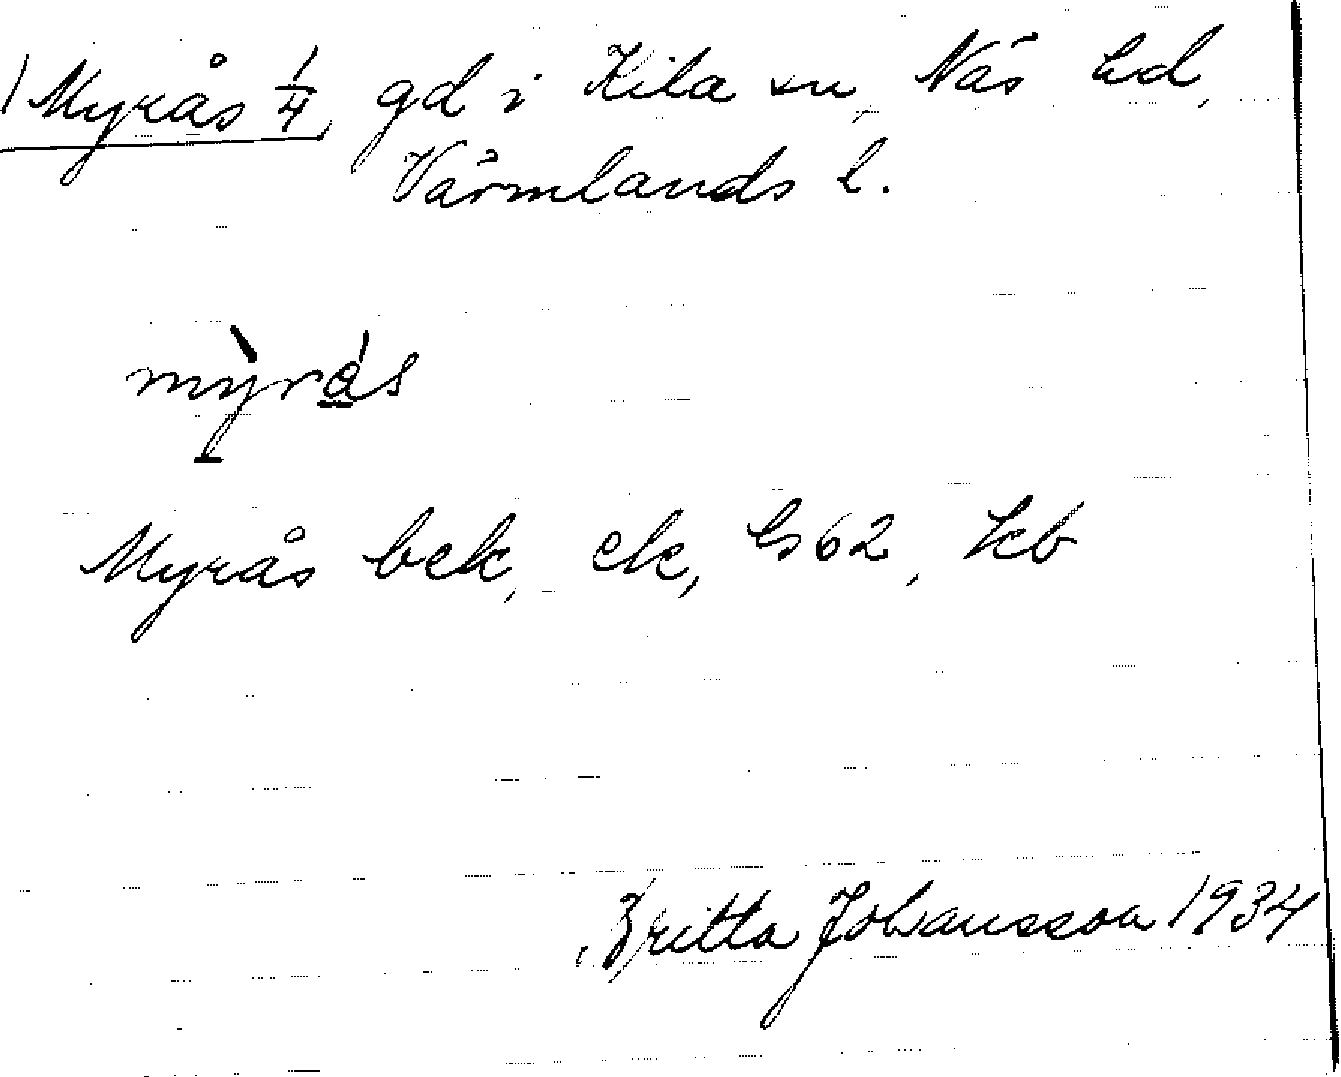 Myrås 1/4 gd i Kila sn, Näs hd,
Värmlands l.
mỳrås
Myrås bek, ek, G62, kb
Britta Johansson 1934